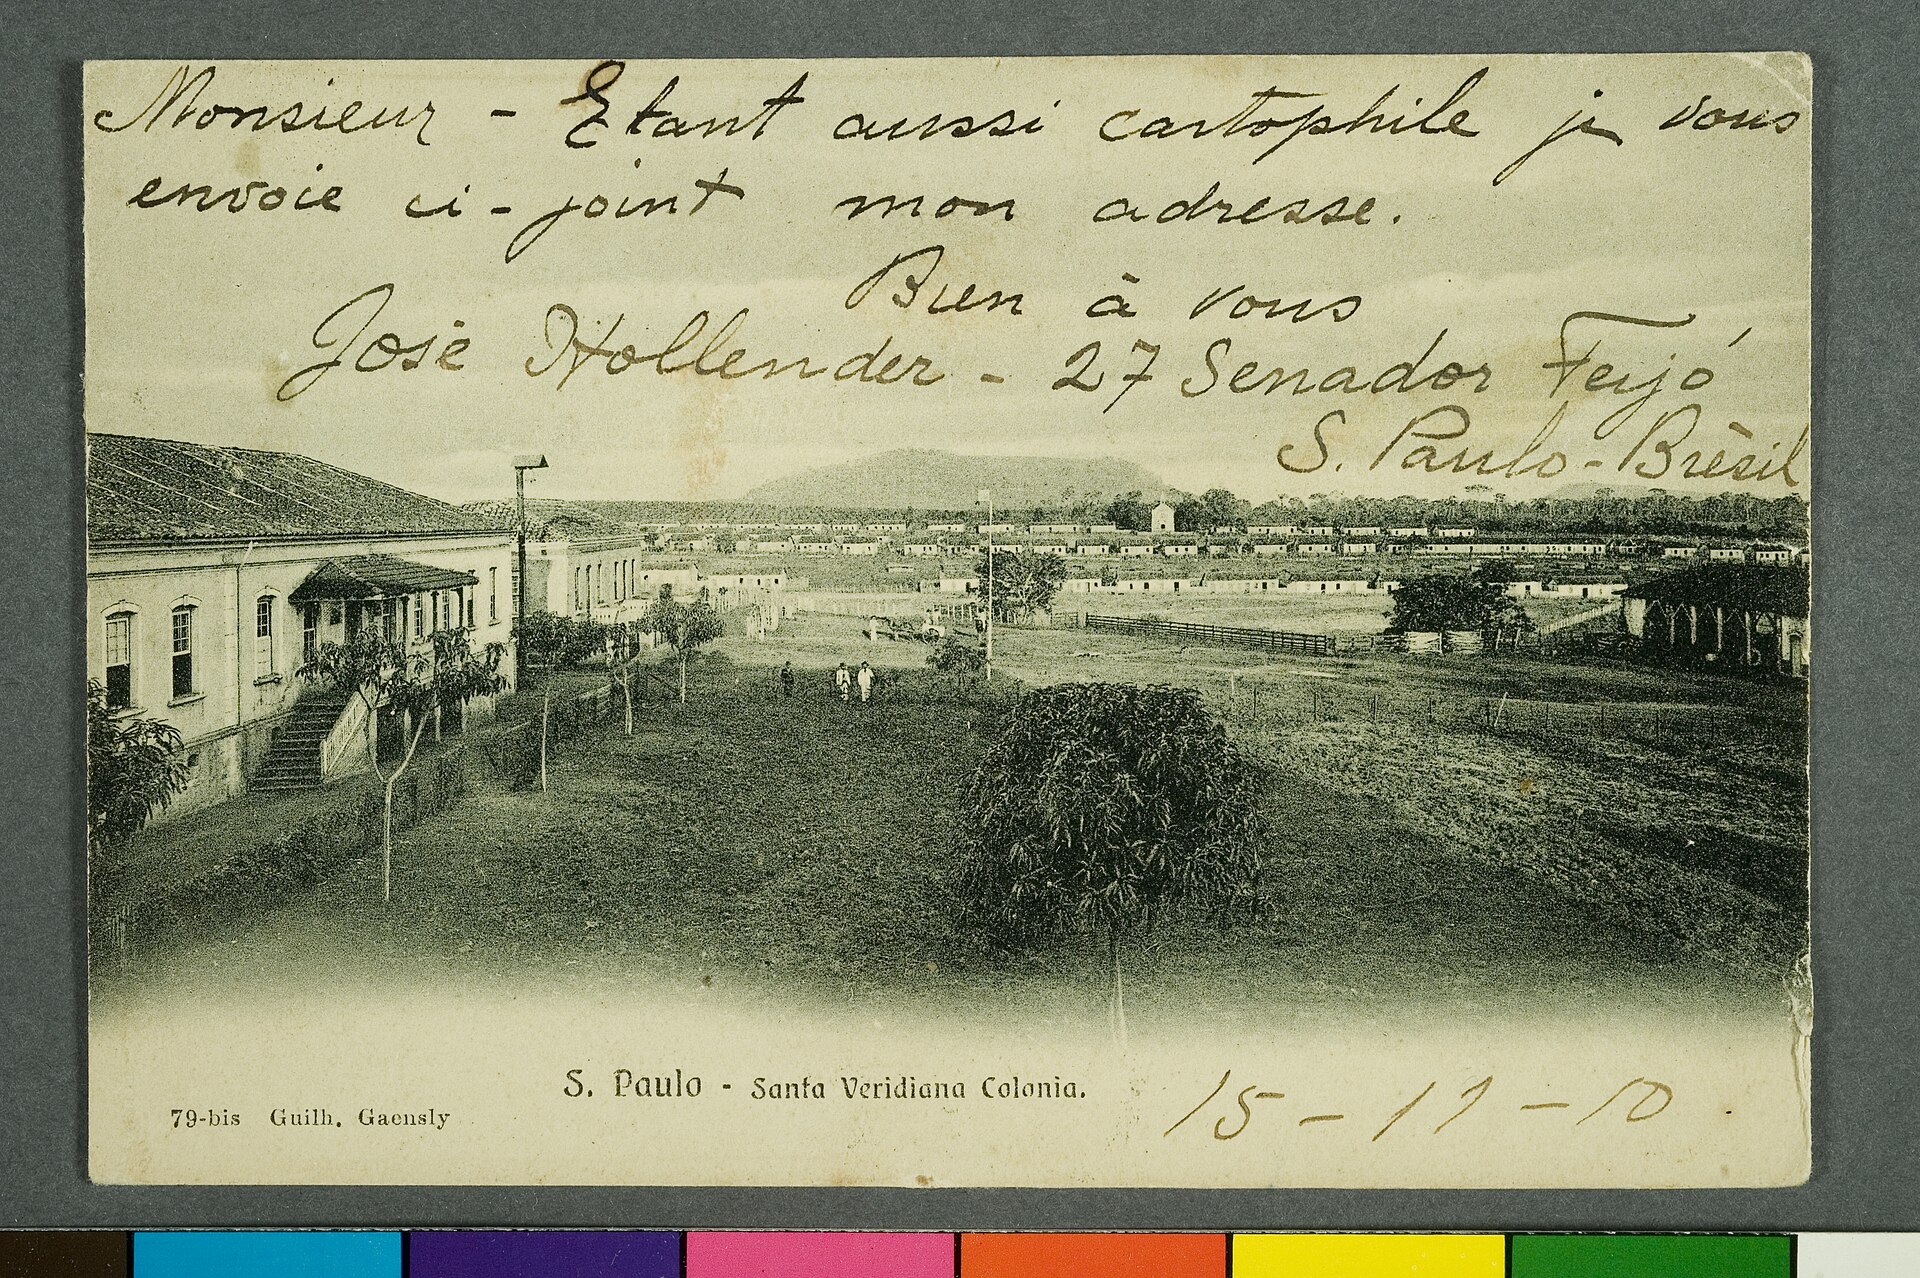 Monsieur - Etant aussi cartophile je vous
envoie ci-joint mon adresse.
Bien à vous
José Hollender - 27 Senador Feijó
S. Paulo - Brésil
S. Paulo - Santa Veridiana Colonia.
79-bis Guilh. Gaensly
15 - 11 - 10.